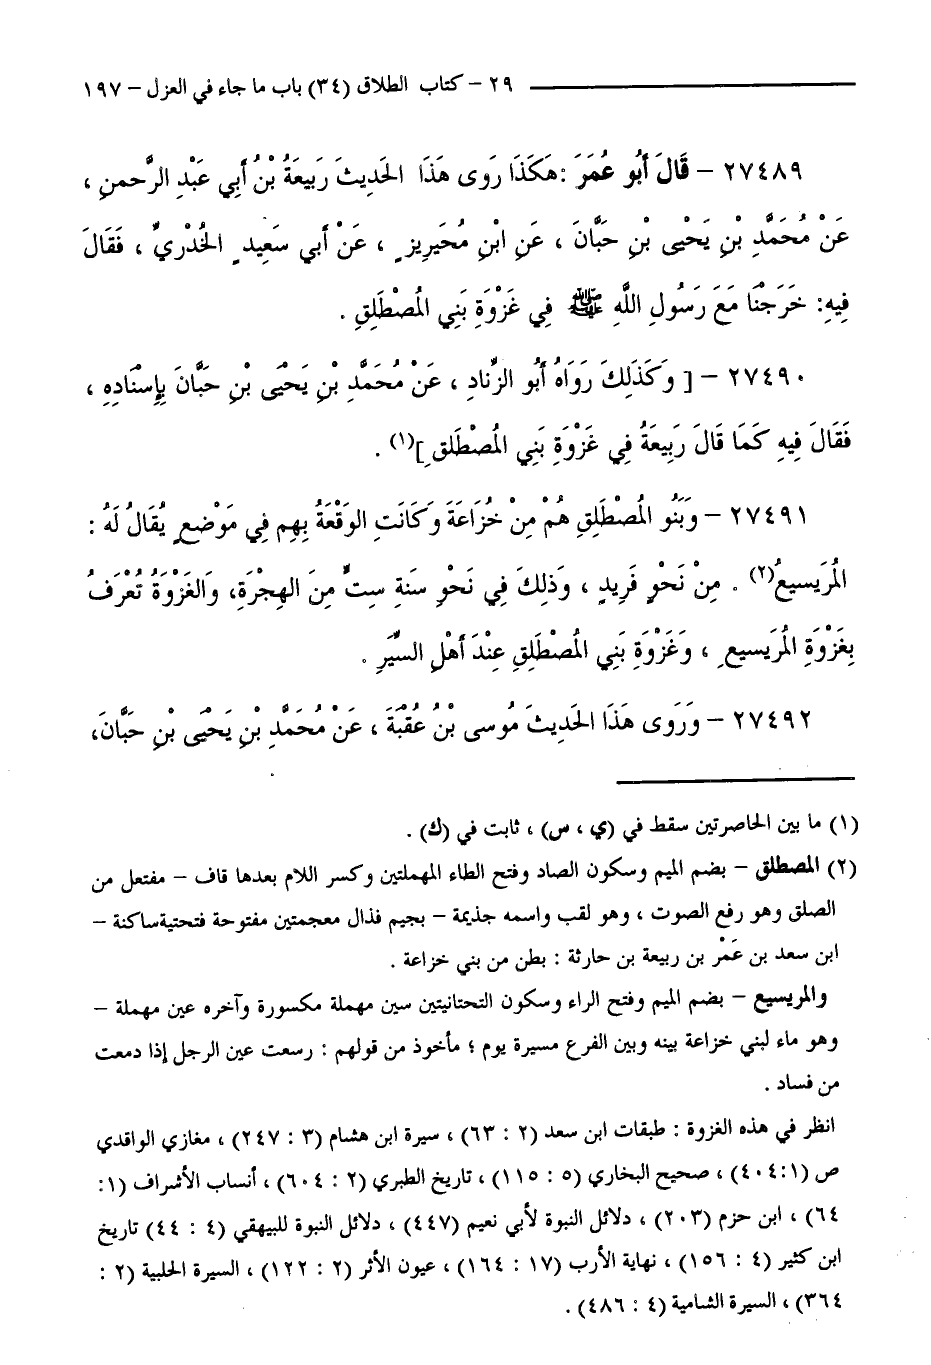 ٢٩ – كتاب الطلاق (٣٤) باب ما جاء في العزل – ١٩٧
٢٧٤٨٩ – قَالَ أَبُو عُمَرَ : هَكَذَا رَوى هَذَا الحَدِيثَ رَبِيعَةُ بْنُ أَبي عَبْدِ الرَّحمنِ ،
عَنْ مُحَمَّدِ بْنِ يَحْيى بْنِ حَبَّانَ ، عَنِ ابْنِ مُحَيرِيزٍ ، عَنْ أبي سَعِيدٍ الخُدْريِّ ، فَقَالَ
فِيهِ: خَرَجْنَا مَعَ رَسُولِ اللَّهِ ﷺ فِي غَزْوَةِ بَنِي الُمصْطَلِقِ .
٢٧٤٩٠ – [ وَكَذَلِكَ رَوَاهُ أَبُو الزِّنادِ ، عَنْ مُحَمَّدِ بْنِ يَحْيَى بْنِ حَبَّانَ بِإِسْنَادِهِ ،
فَقَالَ فِيهِ كَمَا قَالَ رَبِيعَةُ فِي غَزْوَةِ بَنِي الُمصْطَلقِ](١) .
٢٧٤٩١ – وَبَنُو الُمصْطَلِقِ هُمْ مِنْ خُزَاعَةَ وَكَانَتِ الوَقْعَةُ بِهِم فِي مَوْضعٍ يُقَالُ لَهُ :
الُمرَيسيعُ(٢) . مِنْ نَحْوِ فَرِيدٍ ، وَذلِكَ فِي نَحْوِ سَنَةِ سِتٍّ مِنَ الهِجْرَةِ، وَالغَزْوَةُ تُعْرَفُ
بِغَزْوَةِ الُمرَيسيعِ ، وَغَزْوَةِ بَنِي الُمصْطَلِقِ عِنْدَ أَهْلِ السِّيَرِ .
٢٧٤٩٢ – وَرَوى هَذَا الحَدِيثَ مُوسى بْنُ عُقْبَةَ ، عَنْ مُحَمَّدِ بْنِ يَحْيَى بْنِ حَبَّانَ،
(١) ما بين الحاصرتين سقط في (ي ، س) ، ثابت في (ك) .
(٢) المصطلق – بضم الميم وسكون الصاد وفتح الطاء المهملتين وكسر اللام بعدها قاف – مفتعل من
الصلق وهو رفع الصوت ، وهو لقب واسمه جذيمة – بجيم فذال معجمتين مفتوحة فتحتية ساكنة –
ابن سعد بن عَمْر بن ربيعة بن حارثة : بطن من بني خزاعة .
والمريسيع – بضم الميم وفتح الراء وسكون التحتانيتين سين مهملة مكسورة وآخره عين مهملة –
وهو ماء لبني خزاعة بينه وبين الفرع مسيرة يوم ؛ مأخوذ من قولهم : رسعت عين الرجل إذا دمعت
من فساد .
انظر في هذه الغزوة : طبقات ابن سعد (٢ : ٦٣) ، سيرة ابن هشام (٣ : ٢٤٧) ، مغازي الواقدي
ص (١ : ٤٠٤) ، صحيح البخاري (٥ : ١١٥) ، تاريخ الطبري (٢ : ٦٠٤) ، أنساب الأشراف (١ :
٦٤) ، ابن حزم (٢٠٣) ، دلائل النبوة لأبي نعيم (٤٤٧) ، دلائل النبوة للبيهقي (٤ : ٤٤) تاريخ
ابن كثير (٤ : ١٥٦) ، نهاية الأرب (١٧ : ١٦٤) ، عيون الأثر (٢ : ١٢٢) ، السيرة الحلبية (٢ :
٣٦٤) ، السيرة الشامية (٤ : ٤٨٦) .